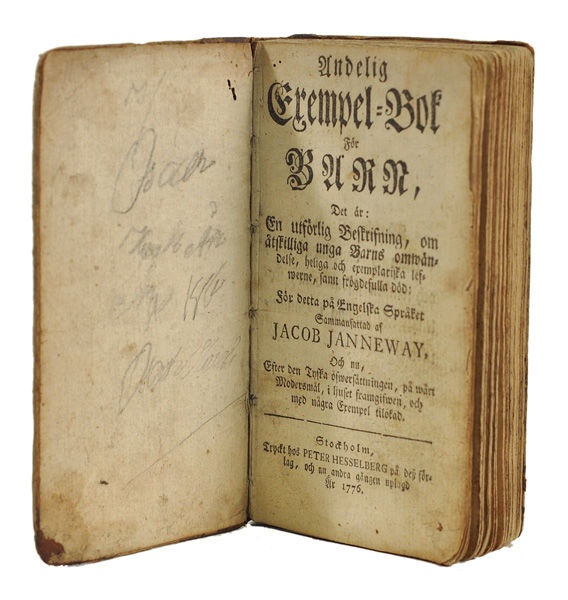 Andelig
Exempel-Bok
För
BARN,
Det är:
En utförlig Beskrifning, om
åtskilliga unga Barns omwän-
delse, heliga och exemplariska lef-
werne, samt frögdefulla död:
För detta på Engelska Språket
Sammanfattad af
JACOB JANNEWAY,
Och nu,
Efter den Tyska öfwersättningen, på wårt
Modersmål, i ljuset framgifwen, och
med några Exempel tilökad.
Stockholm,
Tryckt hos PETER HESSELBERG på deß för-
lag, och nu andra gången uplagd
År 1776.